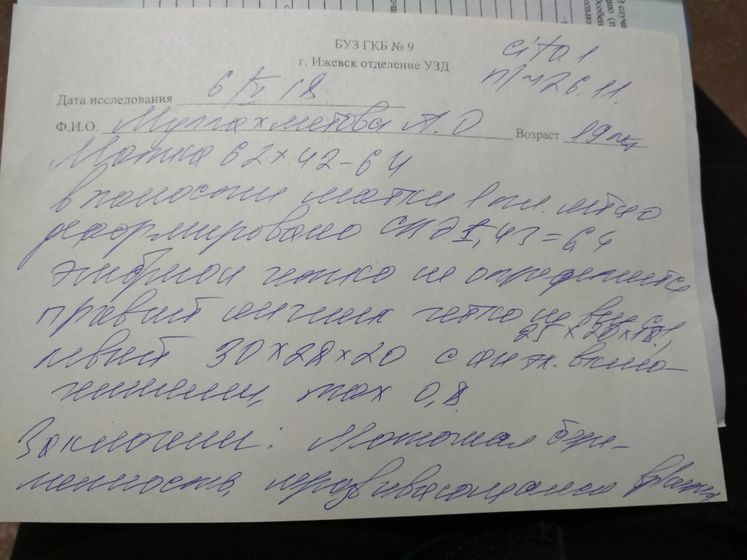 БУЗ ГКБ № 9
г. Ижевск отделение УЗД
cito!
26.11.
Дата исследования 6 18
Ф.И.О. Муллахметова А. О Возраст 19 лет
Матка 62×42-64
в полости матки 1 пл. яйцо
деформировано СВД 43=6,4
эмбрион четко не определяется
правый яичник четко не 25×20×18,
левый 30×28×20 с ан эх. вклю-
чениями, max 0,8
Заключение: Маточная бере-
менность, неразвивающаяся